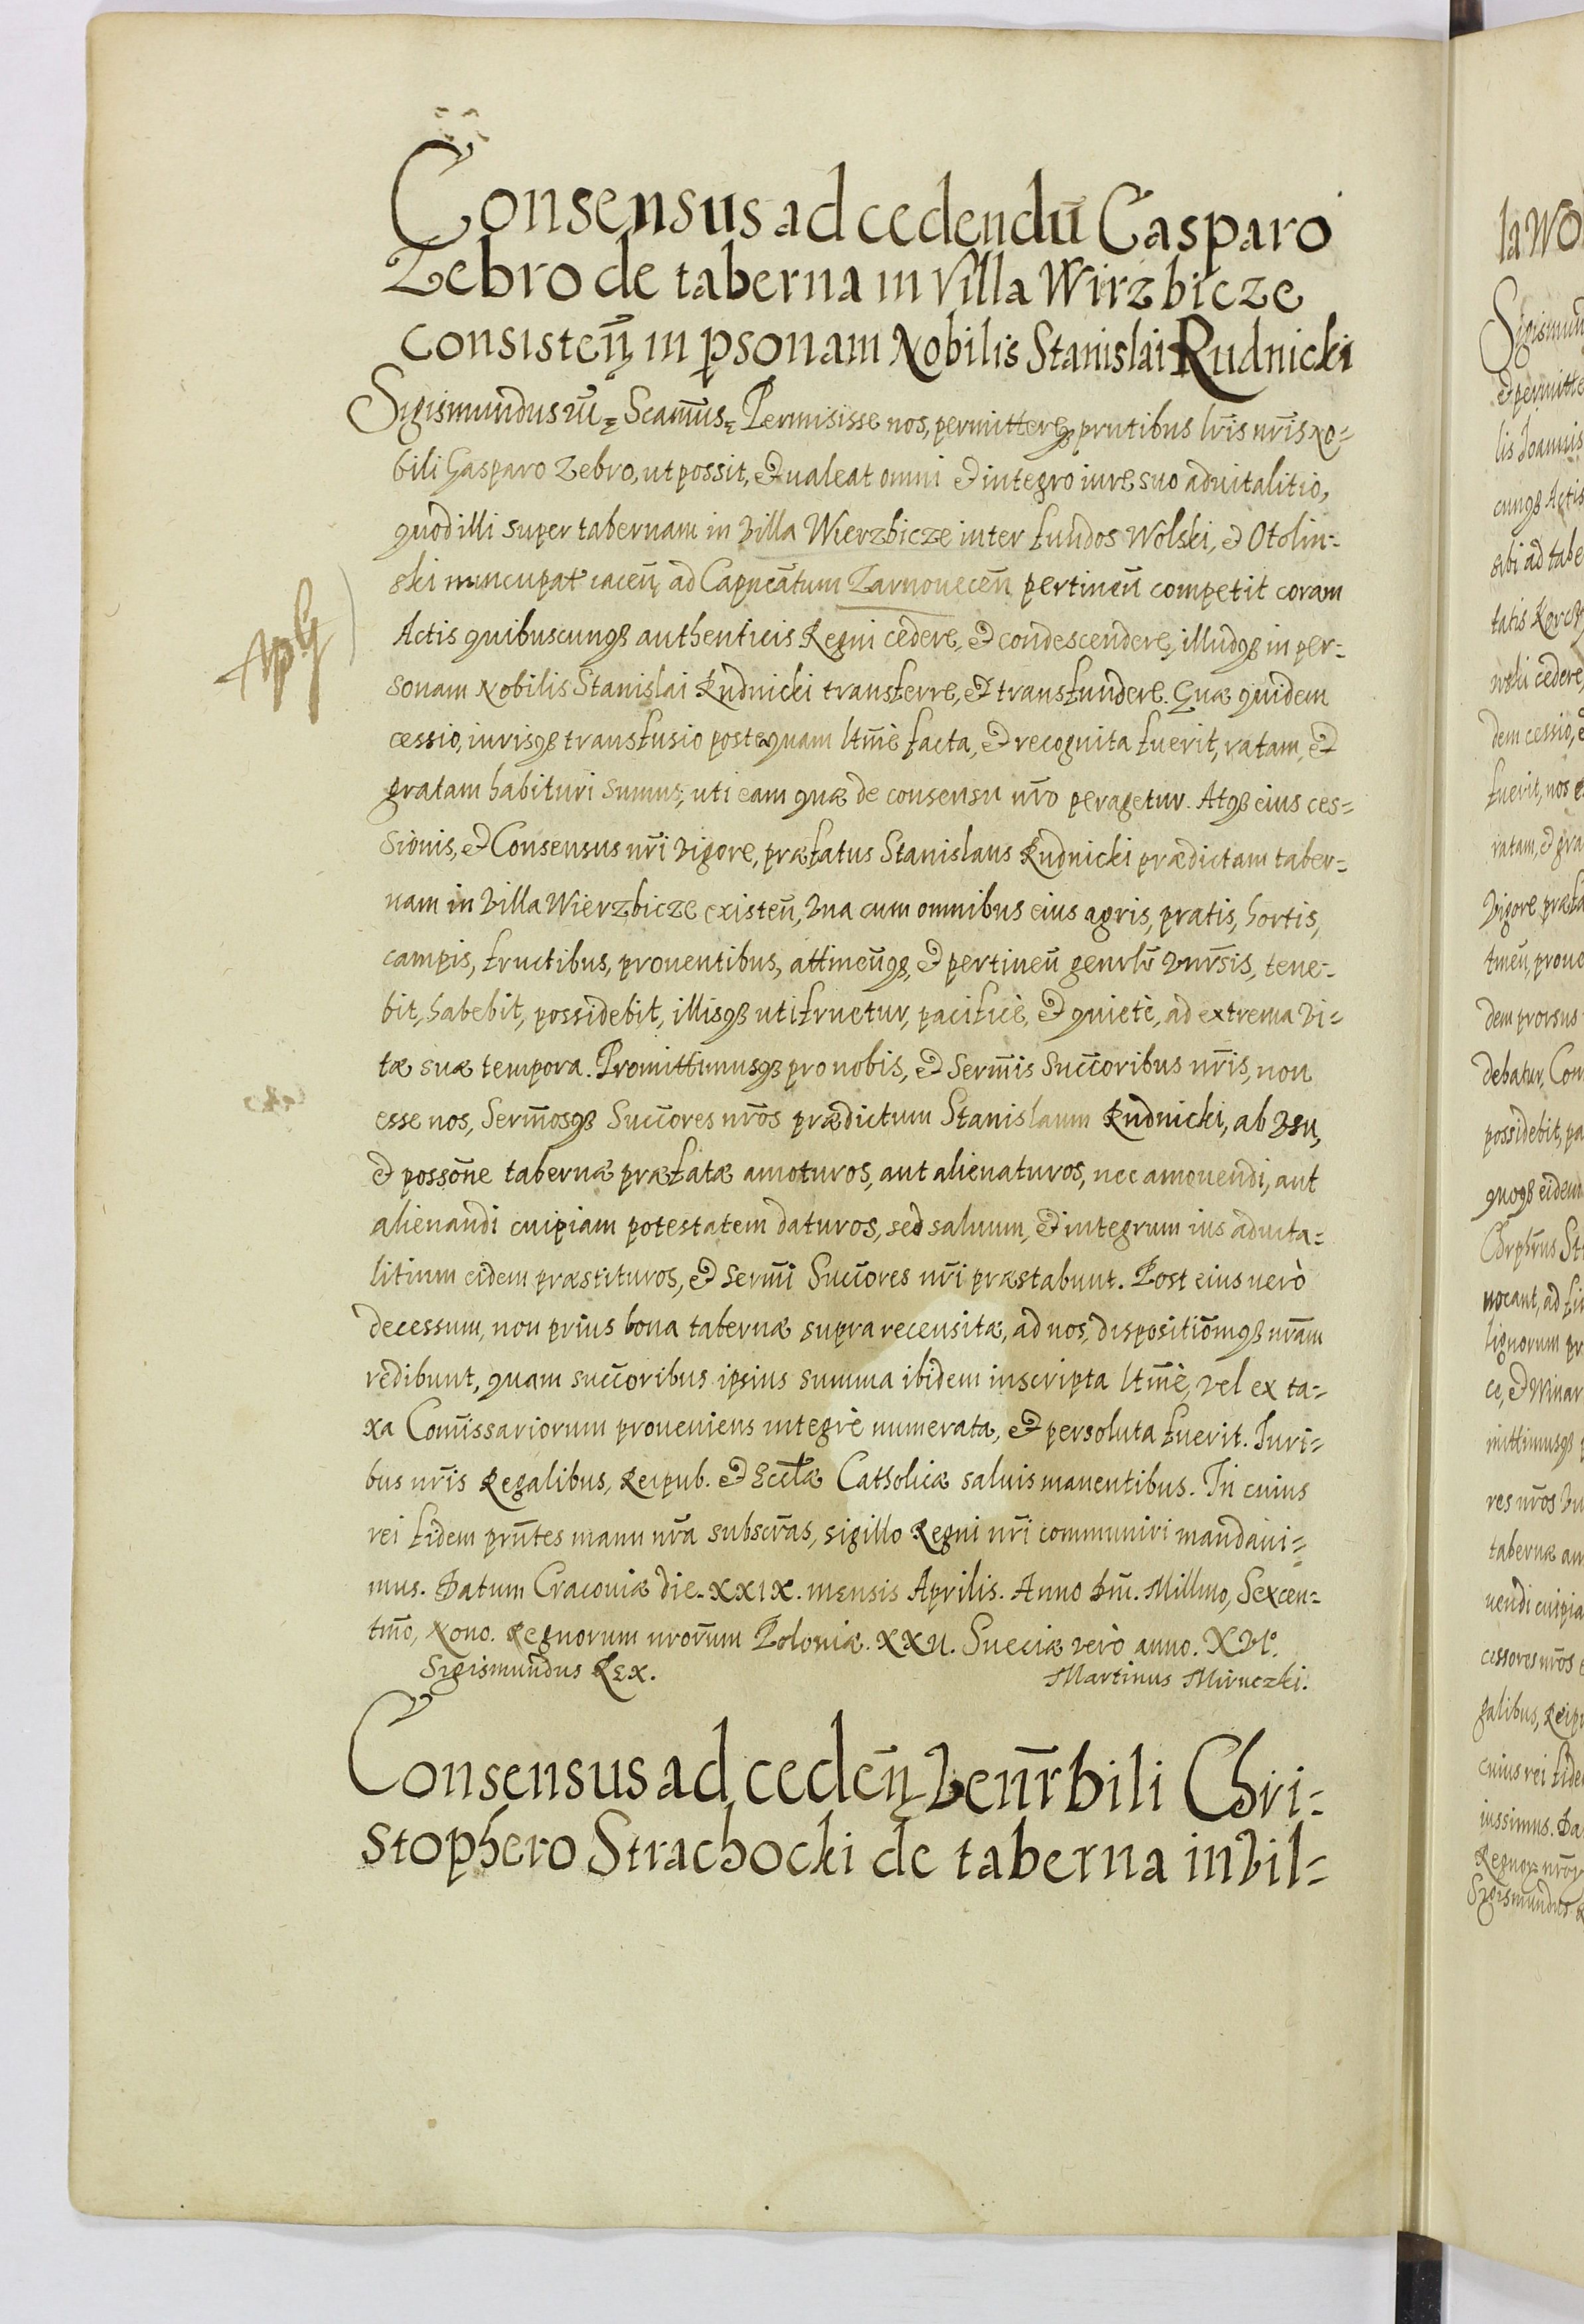 Consensus ad cedendū Casparo
Zebro de taberna in Villa Wirzbicze
consisteñ in psonam Nobilis Stanislai Rudnicki
Sigismundus Permisisse nos, permittereqȝ prntibus lr̄is nr̄is No-
bili Gasparo Zebro, ut possit, et ualeat omni et integro iure suo aduitalitio,
quod illi super tabernam in Villa Wierzbicze inter fundos Wolski, et Otolin-
ski nuncupat iaceñ ad Capneātum Zarnoueceñ pertineñ competit coram
Actis quibuscunqȝ authenticis Regni cedere, et condescendere, illudqȝ in per-
sonam Nobilis Stanislai Rudnicki transferre, et transfundere. Quæ quidem
cessio, iurisqȝ transfusio postequam ltm̄è facta, et recognita fuerit, ratam, et
gratam habituri sumus, uti eam quæ de consensu nr̄o peragetur. Atqȝ eius ces-
sionis, et Consensus nr̄i Vigore, præfatus Stanislaus Rudnicki prædictam taber-
nam in Villa Wierzbicze existeñ, Vna cum omnibus eius agris, pratis, hortis,
campis, fructibus, prouentibus, attineñqȝ, et pertineñ genrlr̄ Vnr̄sis, tene-
bit, habebit, possidebit, illisqȝ utifruetur, pacificè, et quietè, ad extrema Vi-
tæ suæ tempora. Promittimusqȝ pro nobis, et Serm̄is Succ̄oribus nr̄is, non
esse nos, Serm̄osqȝ Succ̄ores nr̄os prædictum Stanislaum Rudnicki, ab Vsu,
et possōne tabernæ præfatæ amoturos, aut alienaturos, nec amouendi, aut
alienandi cuipiam potestatem daturos, sed saluum, et integrum ius aduita-
litium eidem præstituros, et Serm̄i Succ̄ores nr̄i præstabunt. Post eius uerò
decessum, non prius bona tabernæ supra recensitæ, ad nos, dispositiōmqȝ nr̄am
redibunt, quam succ̄oribus ipsius summa ibidem inscripta ltm̄è, vel ex ta-
xa Com̄issariorum proueniens integrè numerata, et persoluta fuerit. Iuri-
bus nr̄is Regalibus, Reipub. et Eccłæ Catholicæ saluis manentibus. In cuius
rei fidem prn̄tes manu nr̄a subscr̄as, sigillo Regni nr̄i communiri mandaui-
mus. Datum Cracouiæ die. XXIX. mensis Aprilis. Anno Dn̄i. Millmo, Sexcen-
tm̄o, Nono. Regnorum nrorum Poloniæ. XXII. Sueciæ verò anno. XVIº.
Sigismundus Rex.
Martinus Miruczki.
Consensus ad cedeñ Venr̄bili Chri-
stophero Strachocki de taberna in Vil-